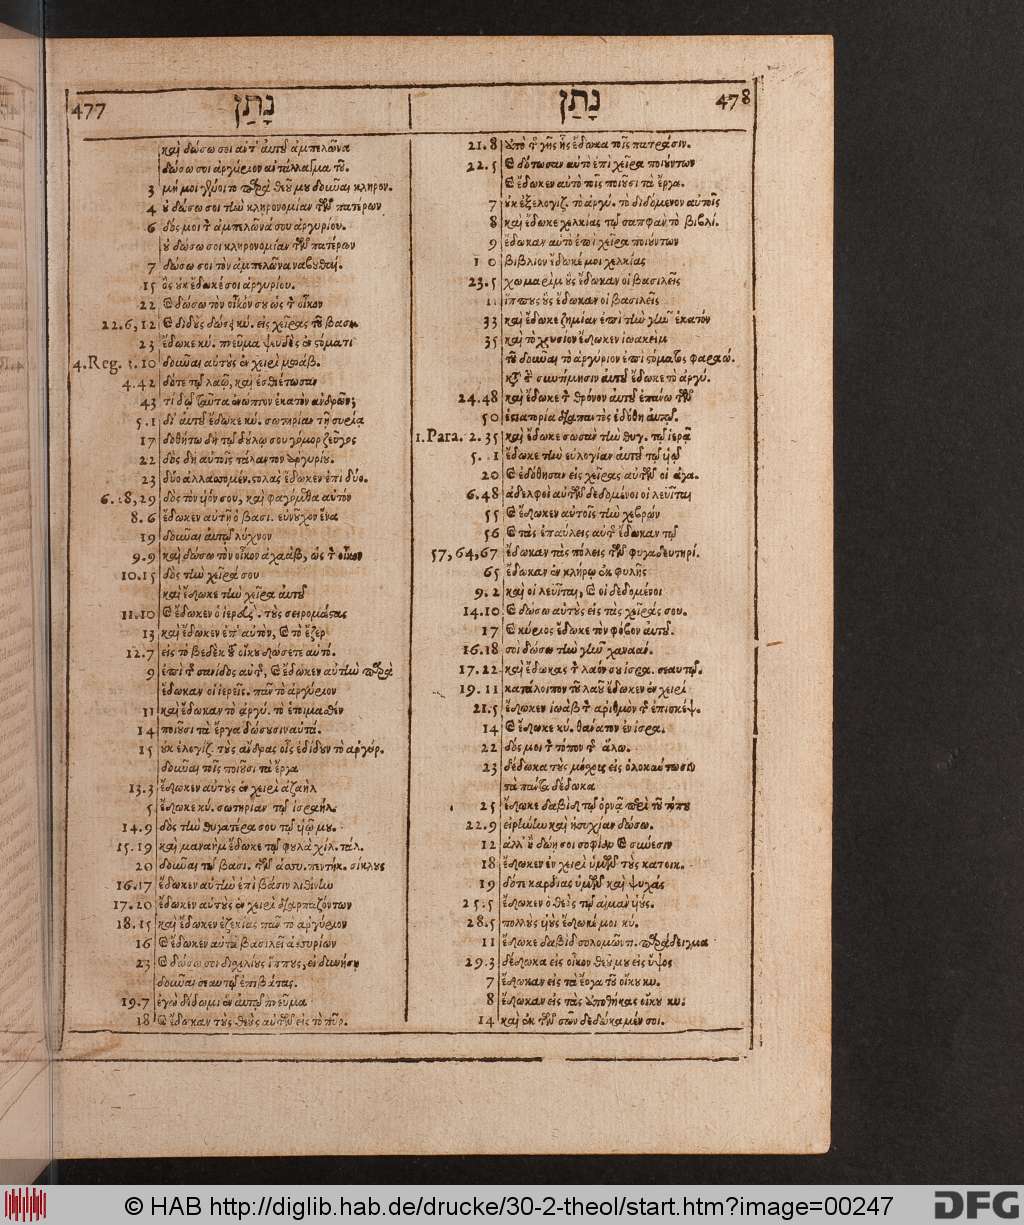 477 נָתַן
καὶ δώσω σοι ἀντ' αὐτοῦ ἀμπελῶνα
δώσω σοι ἀργύριον ἀντάλλαγμα τοῦ.
3 μή μοι γένοιτο παρὰ θεοῦ μου δοῦναι κληρον.
4 οὐ δώσω σοι τὴν κληρονομίαν τῶν πατέρων
6 δός μοι τ ἀμπελῶνά σου ἀργυρίου.
οὐ δώσω σοι κληρονομίαν τῶν πατέρων
7 δώσω σοι τὸν ἀμπελῶνα ναβουθαί.
15 ὃς οὐκ ἔδωκέ σοι ἀργυρίου.
22 καὶ δώσω τὸν οἶκόν σου ὡς τ οἶκον
22.6,12 καὶ διδοὺς δώσει κύ. εἰς χεῖρας τοῦ βασι.
23 ἔδωκε κύ. πνεῦμα ψευδὲς ἐν στόματι
4.Reg. 3.10 δοῦναι αὐτοὺς ἐν χειρὶ μωάβ.
4.42 δότε τῷ λαῷ, καὶ ἐσθιέτωσαν
43 τί δῶ ταῦτα ἐνώπιον ἑκατὸν ἀνδρῶν;
5.1 δι' αὐτοῦ ἔδωκε κύ. σωτηρίαν τῇ συρίᾳ
17 δοθήτω δὴ τῷ δούλῳ σου γόμορ ζεῦγος
22 δὸς δὴ αὐτοῖς τάλαντον ἀργυρίου.
23 δύο ἀλλασσομέν. στολὰς ἔδωκεν ἐπὶ δύο.
6.28,29 δὸς τὸν υἱόν σου, καὶ φαγόμεθα αὐτόν
8.6 ἔδωκεν αὐτῇ ὁ βασι. εὐνοῦχον ἕνα
19 δοῦναι αὐτῷ λύχνον
9.9 καὶ δώσω τὸν οἶκον ἀχαάβ, ὡς τ οἶκον
10.15 δὸς τὴν χεῖρά σου
καὶ ἔδωκε τὴν χεῖρα αὐτοῦ
11.10 καὶ ἔδωκεν ὁ ἱερεὺς. τοὺς σειρομάστας
13 καὶ ἔδωκεν ἐπ' αὐτὸν, καὶ τὸ ἔζερ
12.7 εἰς τὸ βεδὲκ τοῦ οἴκου δώσετε αὐτό.
9 ἐπὶ τ σανίδος αὐτ, καὶ ἔδωκεν αὐτὴν παρὰ
ἔδωκαν οἱ ἱερεῖς. πᾶν τὸ ἀργύριον
11 καὶ ἔδωκαν τὸ ἀργύ. τὸ ἑτοιμασθέν
14 ποιοῦσι τὰ ἔργα δώσουσιν αὐτά.
15 οὐκ ἐλογίζ. τοὺς ἄνδρας οἷς ἐδίδουν τὸ ἀργύρ.
δοῦναι τοῖς ποιοῦσι τὰ ἔργα
13.3 ἔδωκεν αὐτοὺς ἐν χειρὶ ἀζαήλ
5 ἔδωκε κύ. σωτηρίαν τῷ ἰσραήλ.
14.9 δὸς τὴν θυγατέρα σου τῷ υἱῷ μου.
15.19 καὶ μαναὴμ ἔδωκε τῷ φουλὰ χίλ. τάλ.
20 δοῦναι τῷ βασι. τῶν ἀσσυ. πεντήκ. σίκλους
16.17 ἔδωκεν αὐτὴν ἐπὶ βάσιν λιθίνην
17.20 ἔδωκεν αὐτοὺς ἐν χειρὶ διαρπαζόντων
18.15 καὶ ἔδωκεν ἐζεκίας πᾶν τὸ ἀργύριον
16 καὶ ἔδωκεν αὐτὰ βασιλεῖ ἀσσυρίων
23 καὶ δώσω σοι δισχιλίους ἵππους, εἰ δυνήσῃ
δοῦναι σεαυτῷ ἐπιβάτας.
19.7 ἐγὼ δίδωμι ἐν αὐτῷ πνεῦμα
18 καὶ ἔδωκαν τοὺς θεοὺς αὐτῶν εἰς τὸ πῦρ.
נָתַן 478
21.8 ὑπὸ τ γῆς ἧς ἔδωκα τοῖς πατράσιν.
22.5 καὶ δότωσαν αὐτὸ ἐπὶ χεῖρα ποιούντων
καὶ ἔδωκεν αὐτὸ τοῖς ποιοῦσι τὰ ἔργα.
7 οὐκ ἐξελογίζ. τὸ ἀργύ. τὸ διδόμενον αὐτοῖς
8 καὶ ἔδωκε χελκίας τῷ σαπφὰν τὸ βιβλί.
9 ἔδωκαν αὐτὸ ἐπὶ χεῖρα ποιούντων
10 βιβλίον ἔδωκέ μοι χελκίας
23.5 χωμαρὶμ οὓς ἔδωκαν οἱ βασιλεῖς
11 ἵππους οὓς ἔδωκαν οἱ βασιλεῖς
33 καὶ ἔδωκε ζημίαν ἐπὶ τὴν γῆν ἑκατόν
35 καὶ τὸ χρυσίον ἔδωκεν ἰωακείμ
τοῦ δοῦναι τὸ ἀργύριον ἐπὶ στόματος φαραώ.
κατὰ τ συντίμησιν αὐτοῦ ἔδωκε τὸ ἀργύ.
24.48 καὶ ἔδωκε τ θρόνον αὐτοῦ ἐπάνω τῶν
50 ἑστιατορία διαπαντὸς ἐδόθη αὐτῷ.
1.Para. 2.35 καὶ ἔδωκε σωσὰν τὴν θυγ. τῷ ἱερᾷ
5.1 ἔδωκε τὴν εὐλογίαν αὐτοῦ τῷ υἱῷ
20 καὶ ἐδόθησαν εἰς χεῖρας αὐτῶν οἱ ἀγα.
6.48 ἀδελφοὶ αὐτῶν δεδομένοι οἱ λευῖται
55 καὶ ἔδωκεν αὐτοῖς τὴν χεβρών
56 καὶ τὰς ἐπαύλεις αὐτ ἔδωκαν τῷ
57,64,67 ἔδωκαν τὰς πόλεις τῶν φυγαδευτηρί.
65 ἔδωκαν ἐν κλήρῳ ἐκ φυλῆς
9.2 καὶ οἱ λευῖται, καὶ οἱ δεδομένοι
14.10 καὶ δώσω αὐτοὺς εἰς τὰς χεῖράς σου.
17 καὶ κύριος ἔδωκε τὸν φόβον αὐτοῦ.
16.18 σοὶ δώσω τὴν γῆν χαναάν.
17.22 καὶ ἔδωκας τ λαόν σου ἰσρα. σεαυτῷ.
19.11 κατάλοιπον τοῦ λαοῦ ἔδωκεν ἐν χειρί
21.5 ἔδωκεν ἰωὰβ τ ἀριθμὸν τ ἐπισκέψ.
14 καὶ ἔδωκε κύ. θάνατον ἐν ἰσρα.
22 δός μοι τ τόπον τ ἅλω.
23 δέδωκα τοὺς μόσχους εἰς ὁλοκαύτωσιν
τὰ πάντα δέδωκα
25 ἔδωκε δαβὶδ τῷ ὀρνᾷ περὶ τοῦ τόπου
22.9 εἰρήνην καὶ ἡσυχίαν δώσω.
12 ἀλλ' ἢ δῴη σοι σοφίαν καὶ σύνεσιν
18 ἔδωκεν ἐν χειρὶ ὑμῶν τοὺς κατοικ.
19 δότε καρδίας ὑμῶν καὶ ψυχάς
25.5 ἔδωκεν ὁ θεὸς τῷ αἱμὰν υἱούς.
28.5 πολλοὺς υἱοὺς ἔδωκέ μοι κύ.
11 ἔδωκε δαβὶδ σολομῶν τ. παράδειγμα
29.3 δέδωκα εἰς οἶκον θεοῦ μου εἰς ὕψος
7 ἔδωκαν εἰς τὰ ἔργα τοῦ οἴκου κυ.
8 ἔδωκαν εἰς τὰς ἀποθήκας οἴκου κυ.
14 καὶ ἐκ τῶν σῶν δεδώκαμέν σοι.
© HAB http://diglib.hab.de/drucke/30-2-theol/start.htm?image=00247 DFG